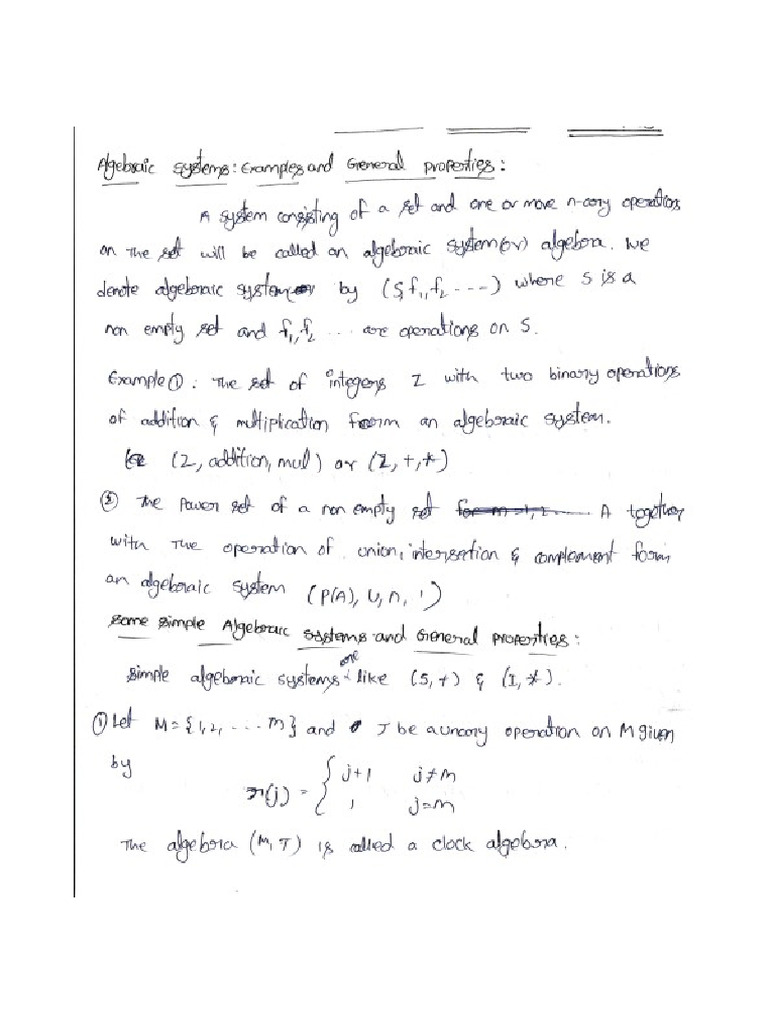 Algebraic systems: Examples and General properties:
A system consisting of a set and one or more n-ary operations
on the set will be called an algebraic system (or) algebra. We
denote algebraic system by (S, f₁, f₂ ----) where S is a
non empty set and f₁, f₂ ... are operations on S.
Example ①: The set of integers I with two binary operations
of addition & multiplication form an algebraic system.
(Z, addition, mul) or (Z, +, *)
② The power set of a non empty set A together
with the operation of union, intersection & complement form
an algebraic system (P(A), U, ∩, ')
some simple Algebraic systems and General properties:
simple algebraic systems are like (S, +) & (I, *).
① Let M = {1, 2, .... m} and T be a unary operation on M given
by
(j) = { j+1 j≠m
1 j=m
The algebra (M, T) is called a clock algebra.